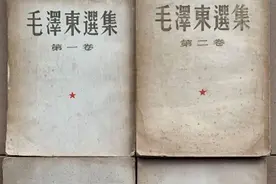 毛澤東選集
第一卷
毛澤東選集
第二卷